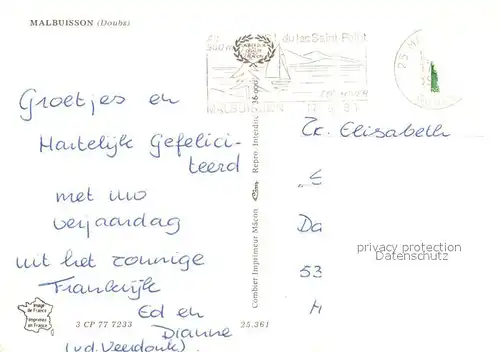 MALBUISSON (Doubs)
du lac Saint-Point
MALBUISSON
Groetjes en
Hartelijk Gefelici-
teerd
met uw
verjaardag
uit het zonnige
Frankrijk
Ed en
Dianne
(v.d. Veerdonk)
Zr. Elisabeth
Da
53
privacy protection
Datenschutz
Combier Imprimeur Mâcon
Repro. Interdite
Image
de France
Imprimée
en France
3 CP 77 7233
25.361